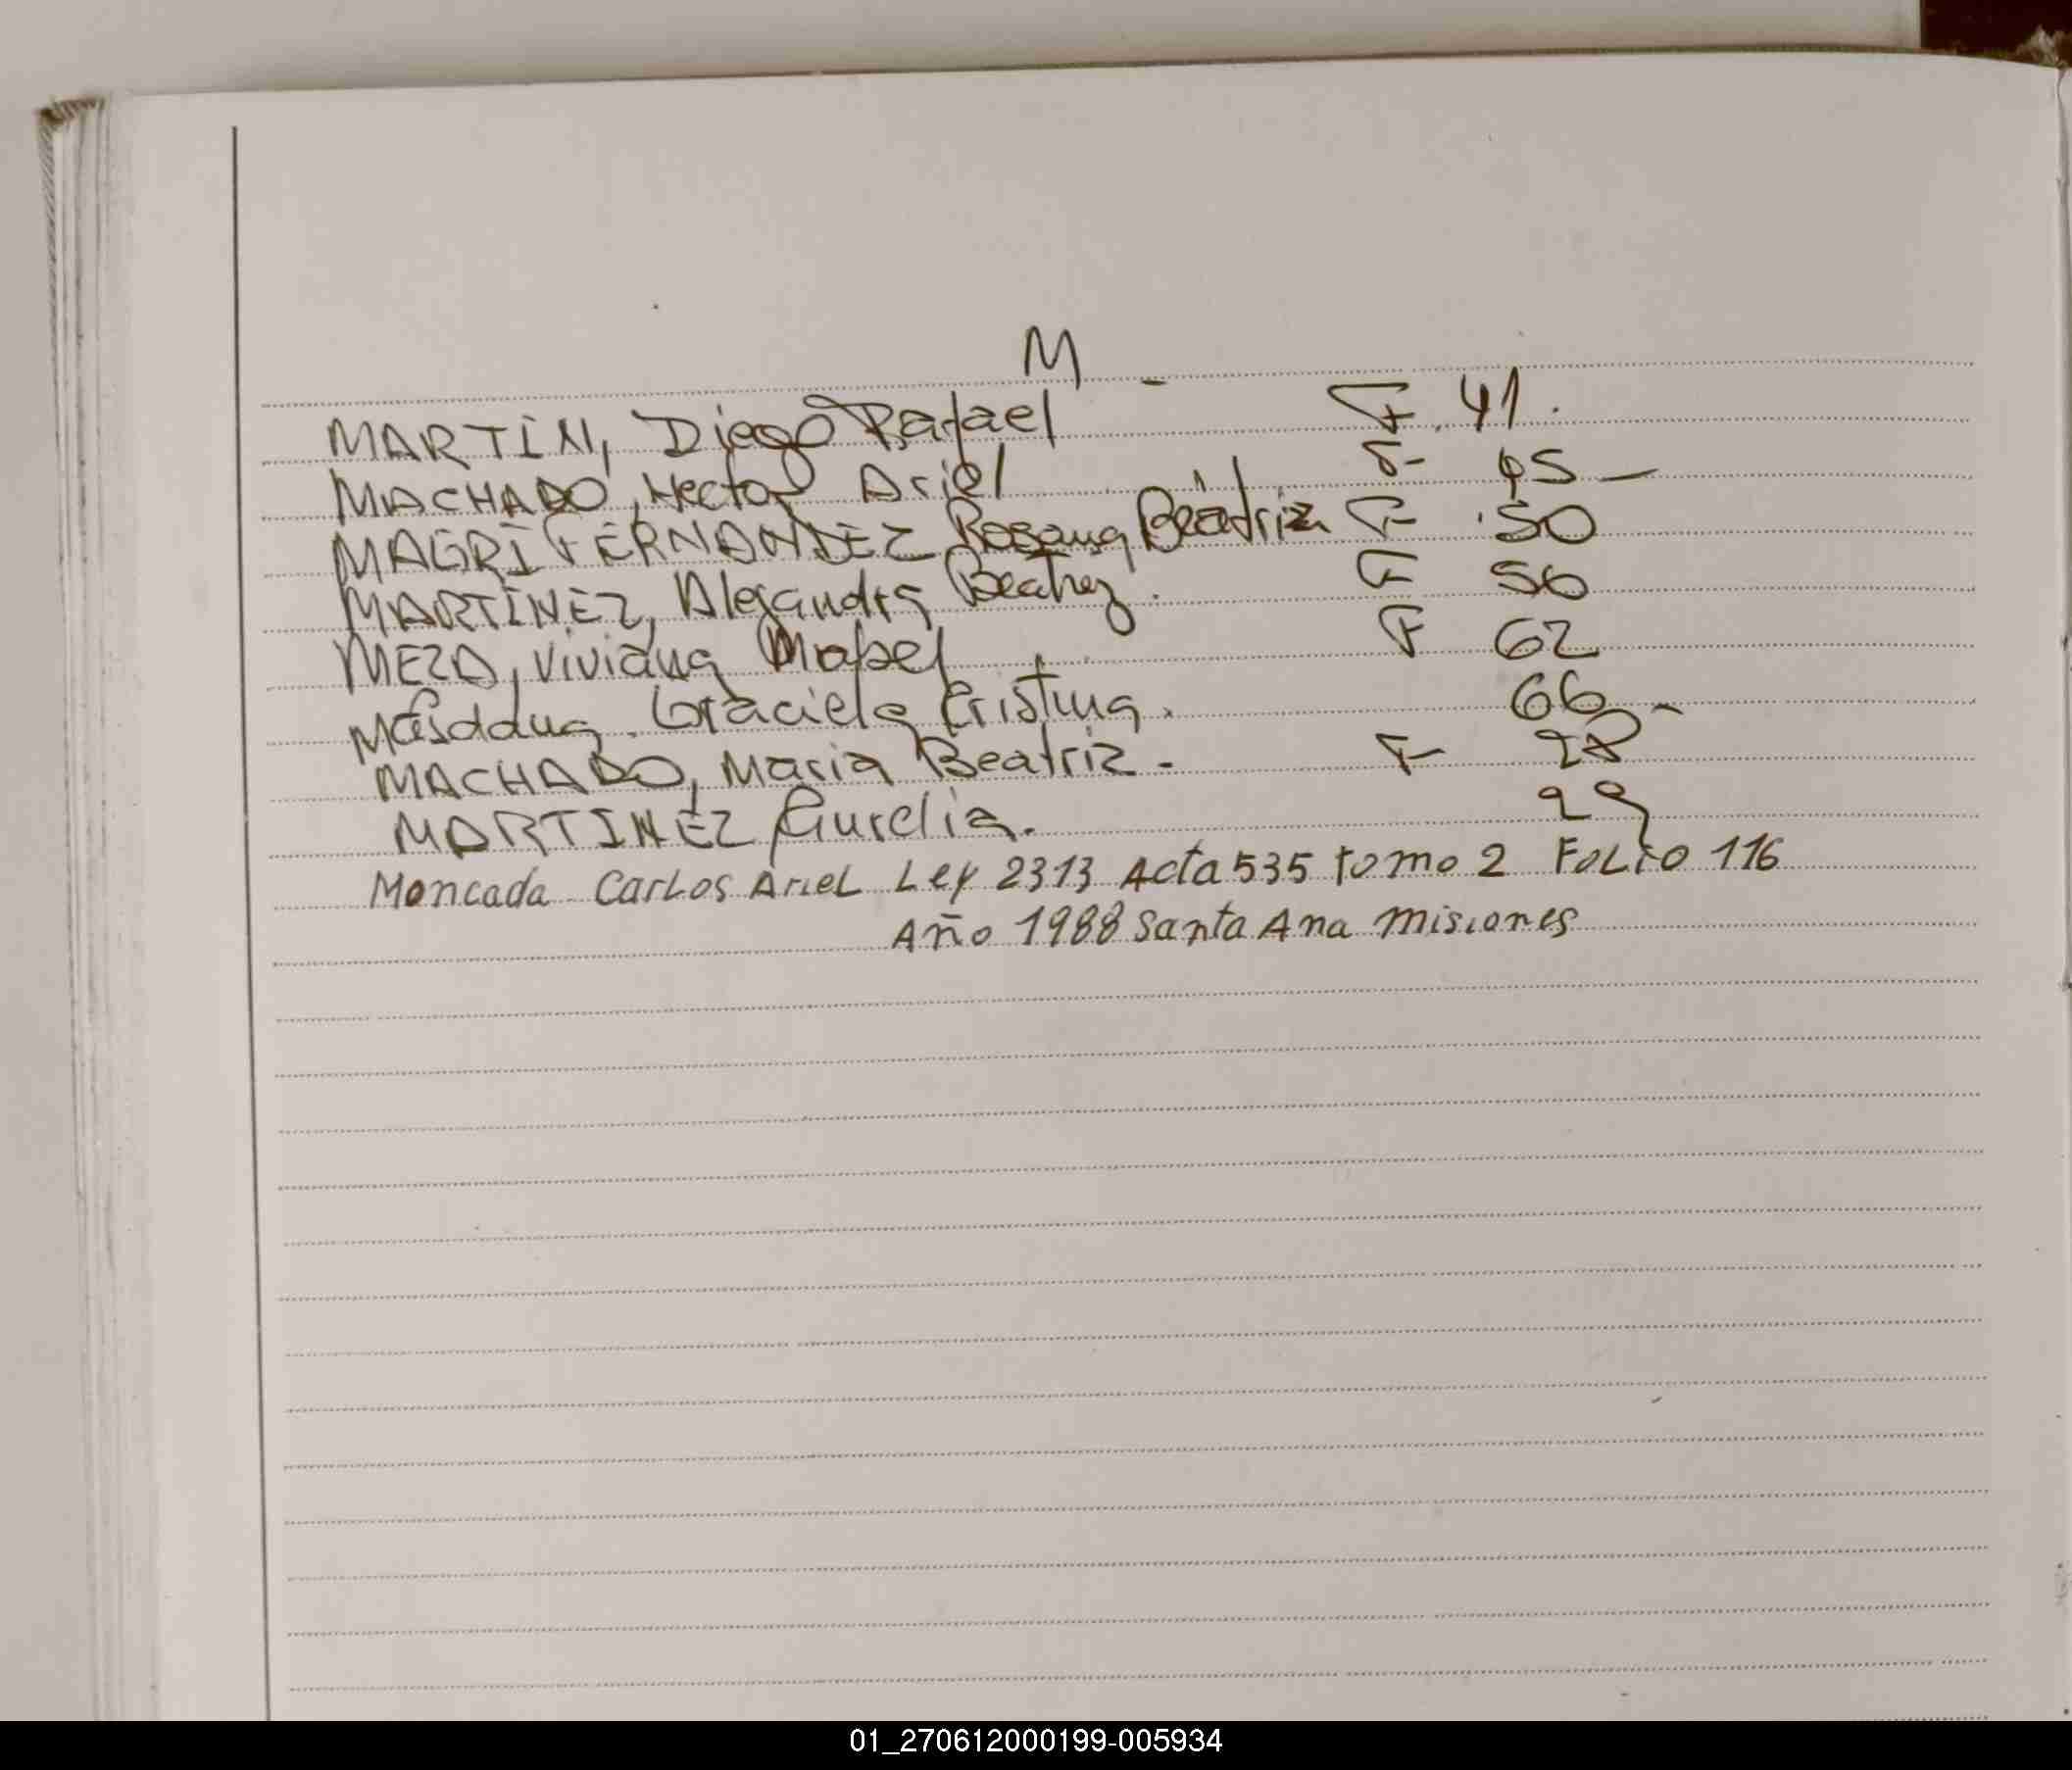 M -
MARTIN, Diego Rafael F. 41.
MACHADO, Hector Ariel F- 45-
MAGRI FERNANDEZ Rosana Beatriz F 50
MARTINEZ, Alejandra Beatriz. F 56
MEZA, Viviana Mabel F 62
Graciela Cristina. 66-
MACHADO, Maria Beatriz.- F 28
MARTINEZ Aurelia. 29
Moncada Carlos Ariel Ley 2313 Acta 535 tomo 2 Folio 116
Año 1988 Santa Ana Misiones
01_270612000199-005934